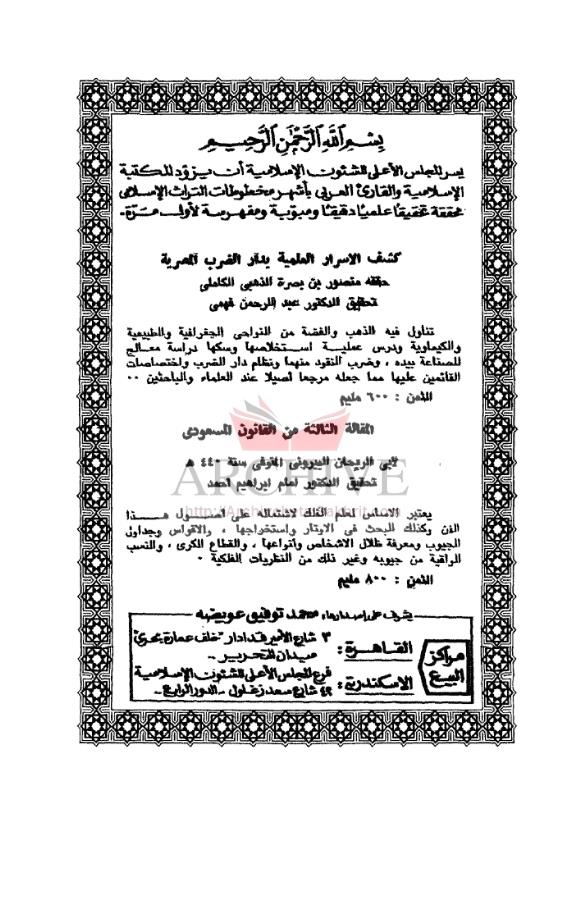 بسم الله الرحمن الرحيم
يسر المجلس الأعلى للشئون الإسلامية أن يزود المكتبة
الإسلامية والقارئ العربى بأشهر مخطوطات التراث الإسلامى
محققة تحقيقا علميا دقيقا ومبوبة ومفهرسة لأول مرة.
كشف الاسرار العلمية بدار الضرب المصرية
حققه منصور بن بصرة الذهبى الكاملى
تحقيق الدكتور عبد الرحمن فهمى
تناول فيه الذهب والفضة من النواحى الجغرافية والطبيعية
والكيماوية ودرس عملية استخلاصها وسكها دراسة معالج
للصناعة بيده ، وضرب النقود منهما ونظام دار الضرب واختصاصات
القائمين عليها مما جعله مرجعا أصيلا عند العلماء والباحثين ..
الثمن : ٦٠٠ مليم
المقالة الثالثة من القانون المسعودى
لأبى الريحان البيرونى المتوفى سنة ٤٤٠ هـ
تحقيق الدكتور امام ابراهيم احمد
ARCHIVE
يعتبر الاساس لعلم الفلك لاشتماله على اصول هذا
الفن وكذلك البحث فى الاوتار واستخراجها ، والاقواس وجداول
الجيوب ومعرفة ظلال الاشخاص وأنواعها ، والقطاع الكرى ، والنسب
الواقعة من جيوبه وغير ذلك من النظريات الفلكية .
الثمن : ٨٠٠ مليم
يشرف على إصدارها محمد توفيق عويضه
مراكز البيع
القاهرة : ٣ شارع الأمير قدادار "خلف عمارة بحرى"
ميدان التحرير -
الاسكندرية : فرع المجلس الأعلى للشئون الإسلامية
٤٢ شارع سعد زغلول - الدور الرابع -